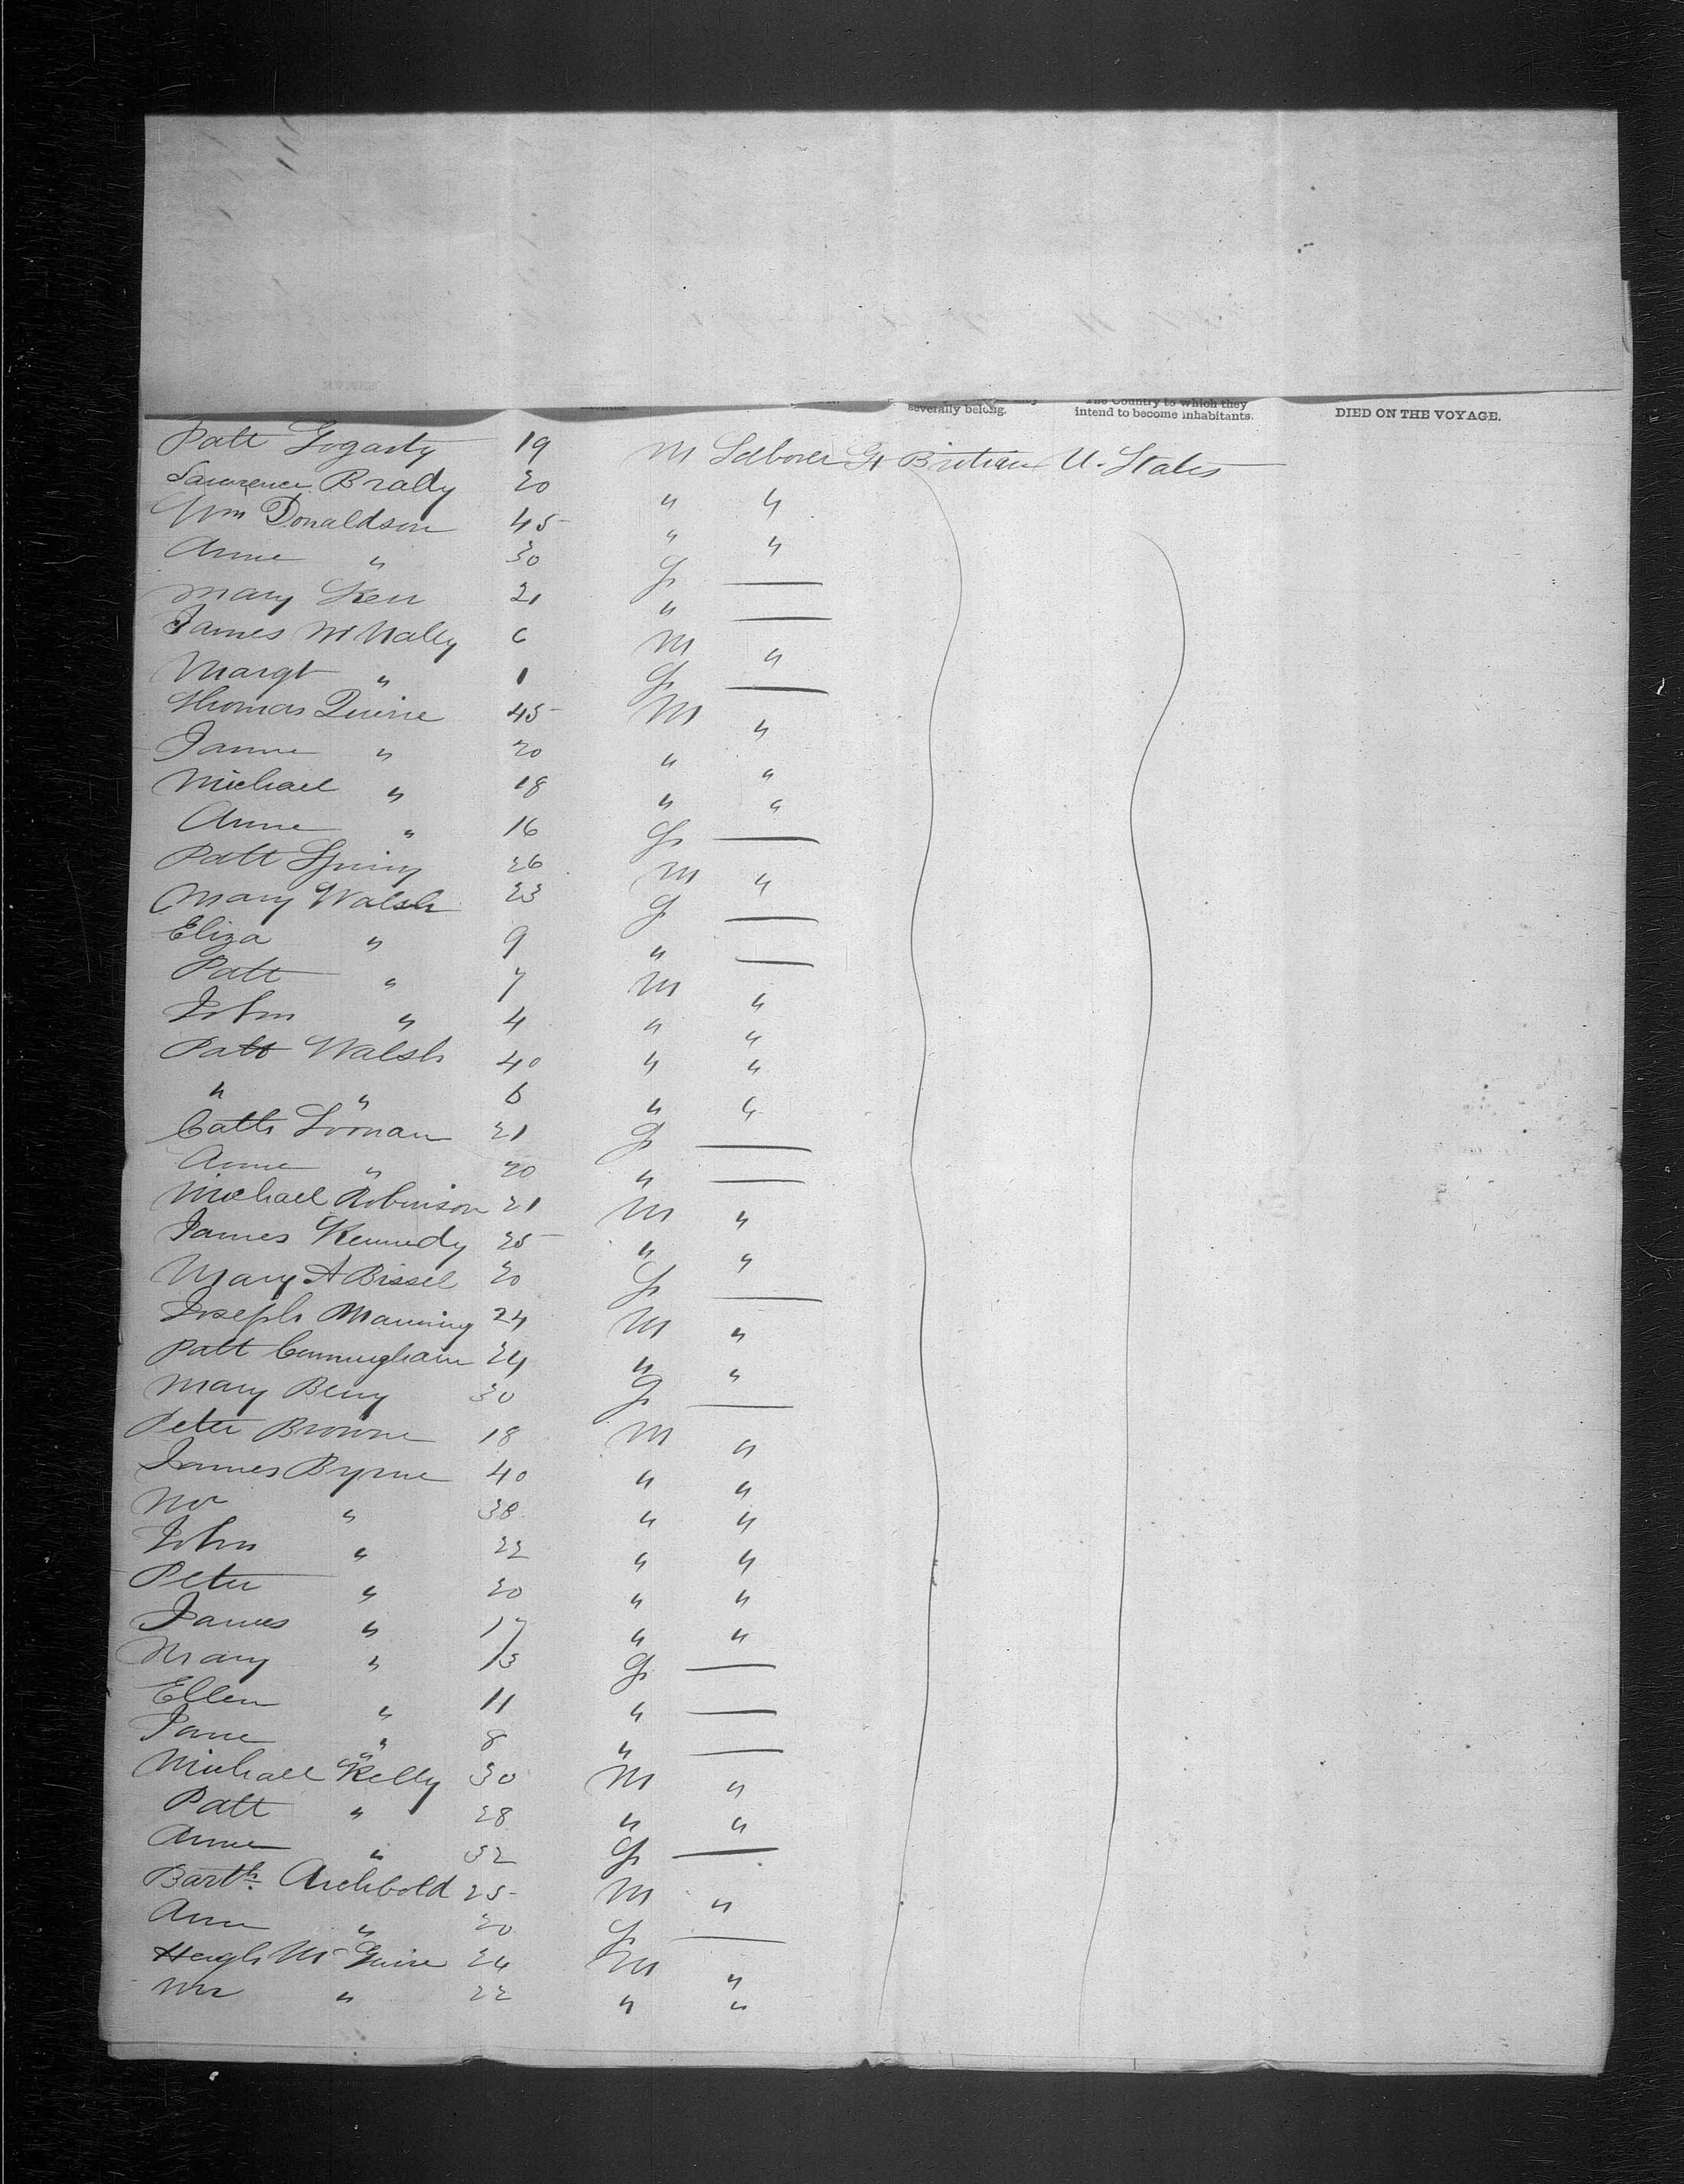 severally belong.
The Country to which they
intend to become inhabitants.
DIED ON THE VOYAGE.
Patt Gogarty 19 M Laborer Gt Britain U. States
Lawrence Brady 20 " "
Wm Donaldson 45 " "
Anne " 30 F —
Mary Kerr 21 " —
James McNally 6 M "
Margt " 1 F —
Thomas Quine 45 M "
" 20 " "
Michael " 18 " "
Anne " 16 F —
Patt 26 M "
Mary Walsh 23 F —
Eliza " 9 " —
Patt " 7 M "
John " 4 " "
Patt Walsh 40 " "
" " 6 " "
Cath 21 F —
Anne " 20 " —
Michael Robinson 21 M "
James Kennedy 25 " "
Mary A Bissel 20 F —
Joseph Manning 24 M "
Patt Cunningham 24 " "
Mary Berry 30 F —
Peter Browne 18 M "
James Byrne 40 " "
" 38 " "
John " 22 " "
Peter " 20 " "
James " 17 " "
Mary " 13 F —
Ellen " 11 " —
Jane " 8 " —
Michael Kelly 30 M "
Patt " 28 " "
Anne " 32 F —
Barth. Archbold 25 M "
Ann " 20 F —
Hugh McGuire 24 M "
" 22 " "